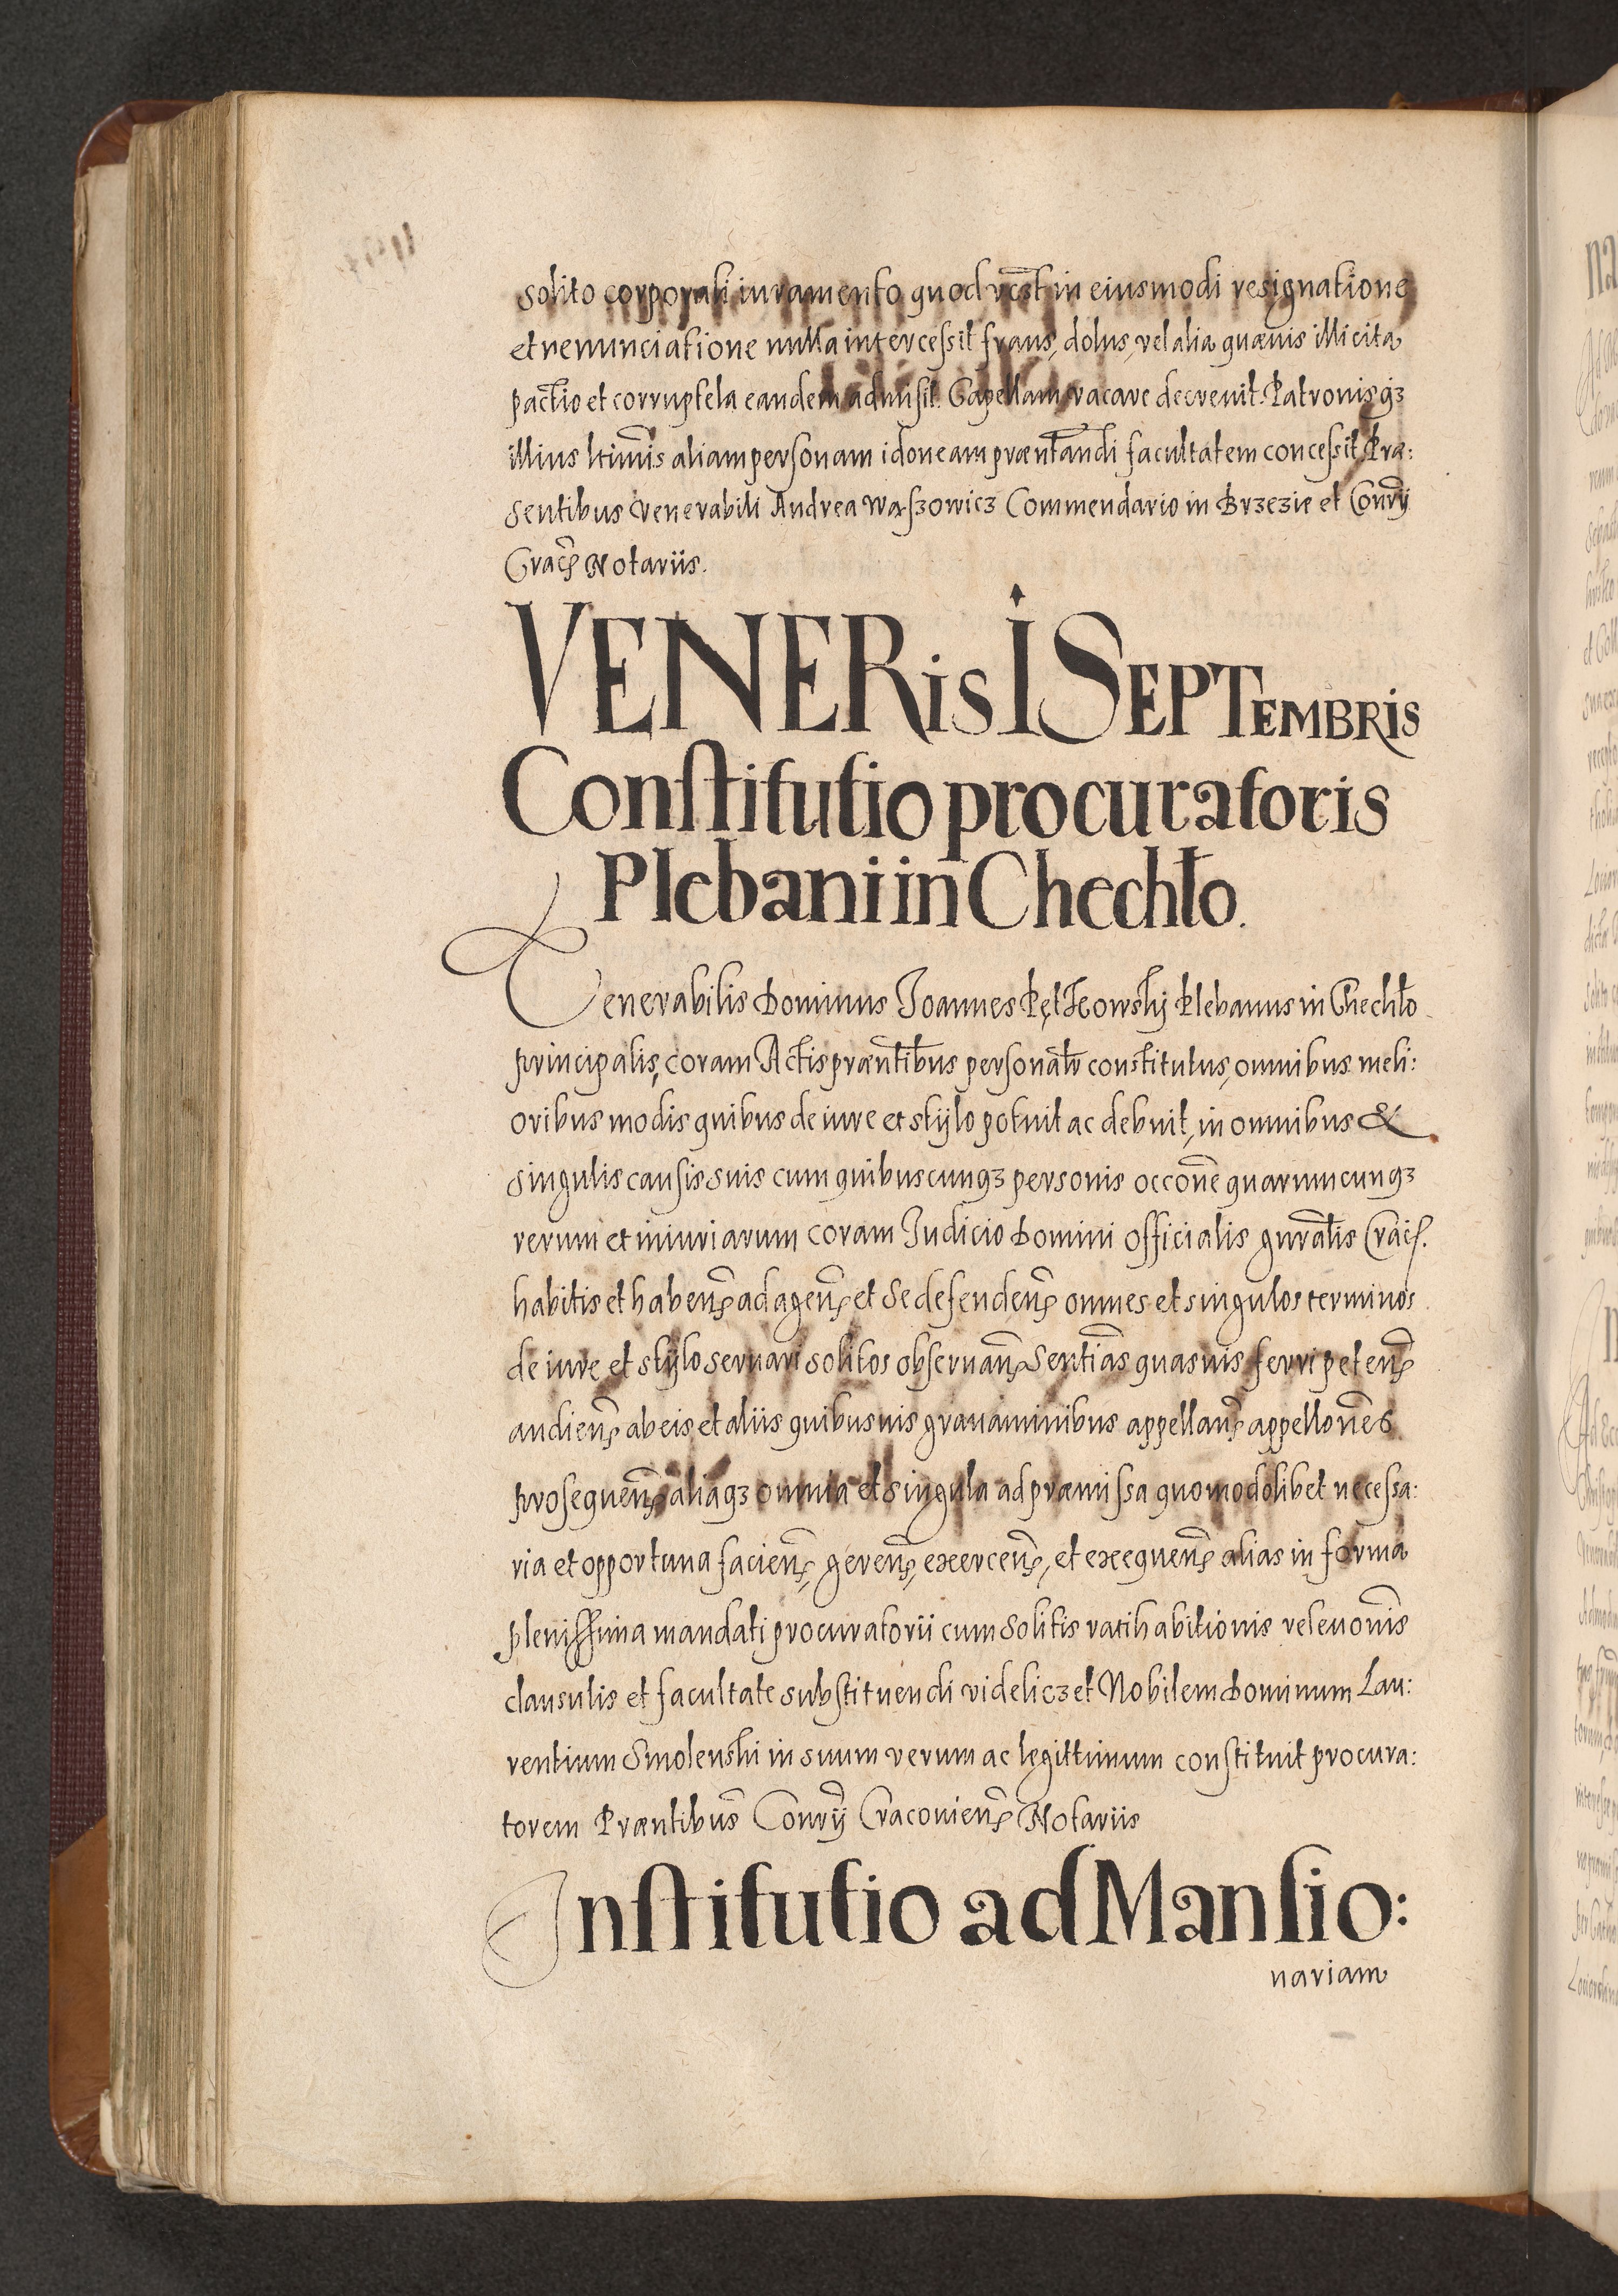 solito corporali iuramento quod in eiusmodi resignatione
et renunciatione nulla intercessit fraus, dolus, vel alia quævis illicita
pactio et corruptela eandem admisit. Capellam vacare decrevit. Patronisqз
illius ltimis aliam personam idoneam præntandi facultatem concessit Præ:
sentibus venerabili Andrea Waszowicz Commendario in Brzezie et Conrÿ
Crac. Notariis.
VENERis I SEPTEMBRis
Constitutio procuratoris
Plebani in Chechło.
Venerabilis Dominus Joannes Plebanus in Chechło
principalis, coram Actis præntibus personalr constitutus, omnibus meli:
oribus modis quibus de iure et stylo potuit ac debuit, in omnibus &
singulis causis suis cum quibuscunqз personis occone quarumcunqз
rerum et iniuriarum coram Judicio Domini officialis gnralis Crac.
habitis et haben. ad agen. et se defenden. omnes et singulos terminos
de iure et stylo servari solitos observan. Sentias quasvis ferri peten.
audien. ab eis et aliis quibusvis gravaminibus appellan. appellones
prosequen. aliaqз omnia et singula ad præmissa quomodolibet necessa:
ria et opportuna facien. geren. exercen. et exequen. alias in forma
plenissima mandati procuratorii cum solitis ratihabitionis relevonis
clausulis et facultate substituendi videliczet Nobilem Dominum Lau:
rentium Smolenski in suum verum ac legittimum constituit procura:
torem Præntibus Conrÿ Cracovien. Notariis
Institutio ad Mansio:
nariam